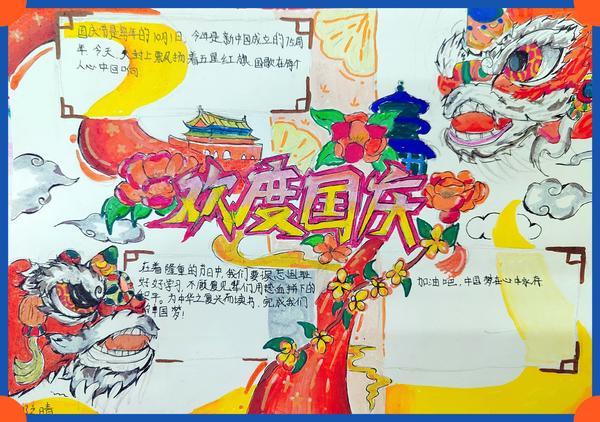 国庆节是每年的10月1日,今年是新中国成立的75周
年,今天,大
上飘扬着五星红旗,国歌在每个
人心中
欢度国庆
在着隆重的节日中,我们要
好好学习,不
们用
血拼下的
和平。为中华之崛兴而读书,完成我们
中国梦!
加油吧,中国梦在心中永存
晴